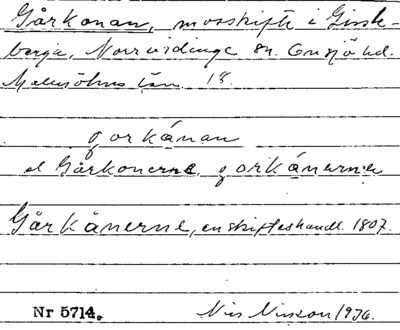 Gårkonan, mosskifte i Ginke-
berga, Norrvidinge sn. Onsjö hd.
Malmöhus län. 18.
gorkánan
el Gårkonerna, gorkánerna
Gårkånerne, enskifteshandl. 1807.
Nr 5714. Nils Nilsson 1936.